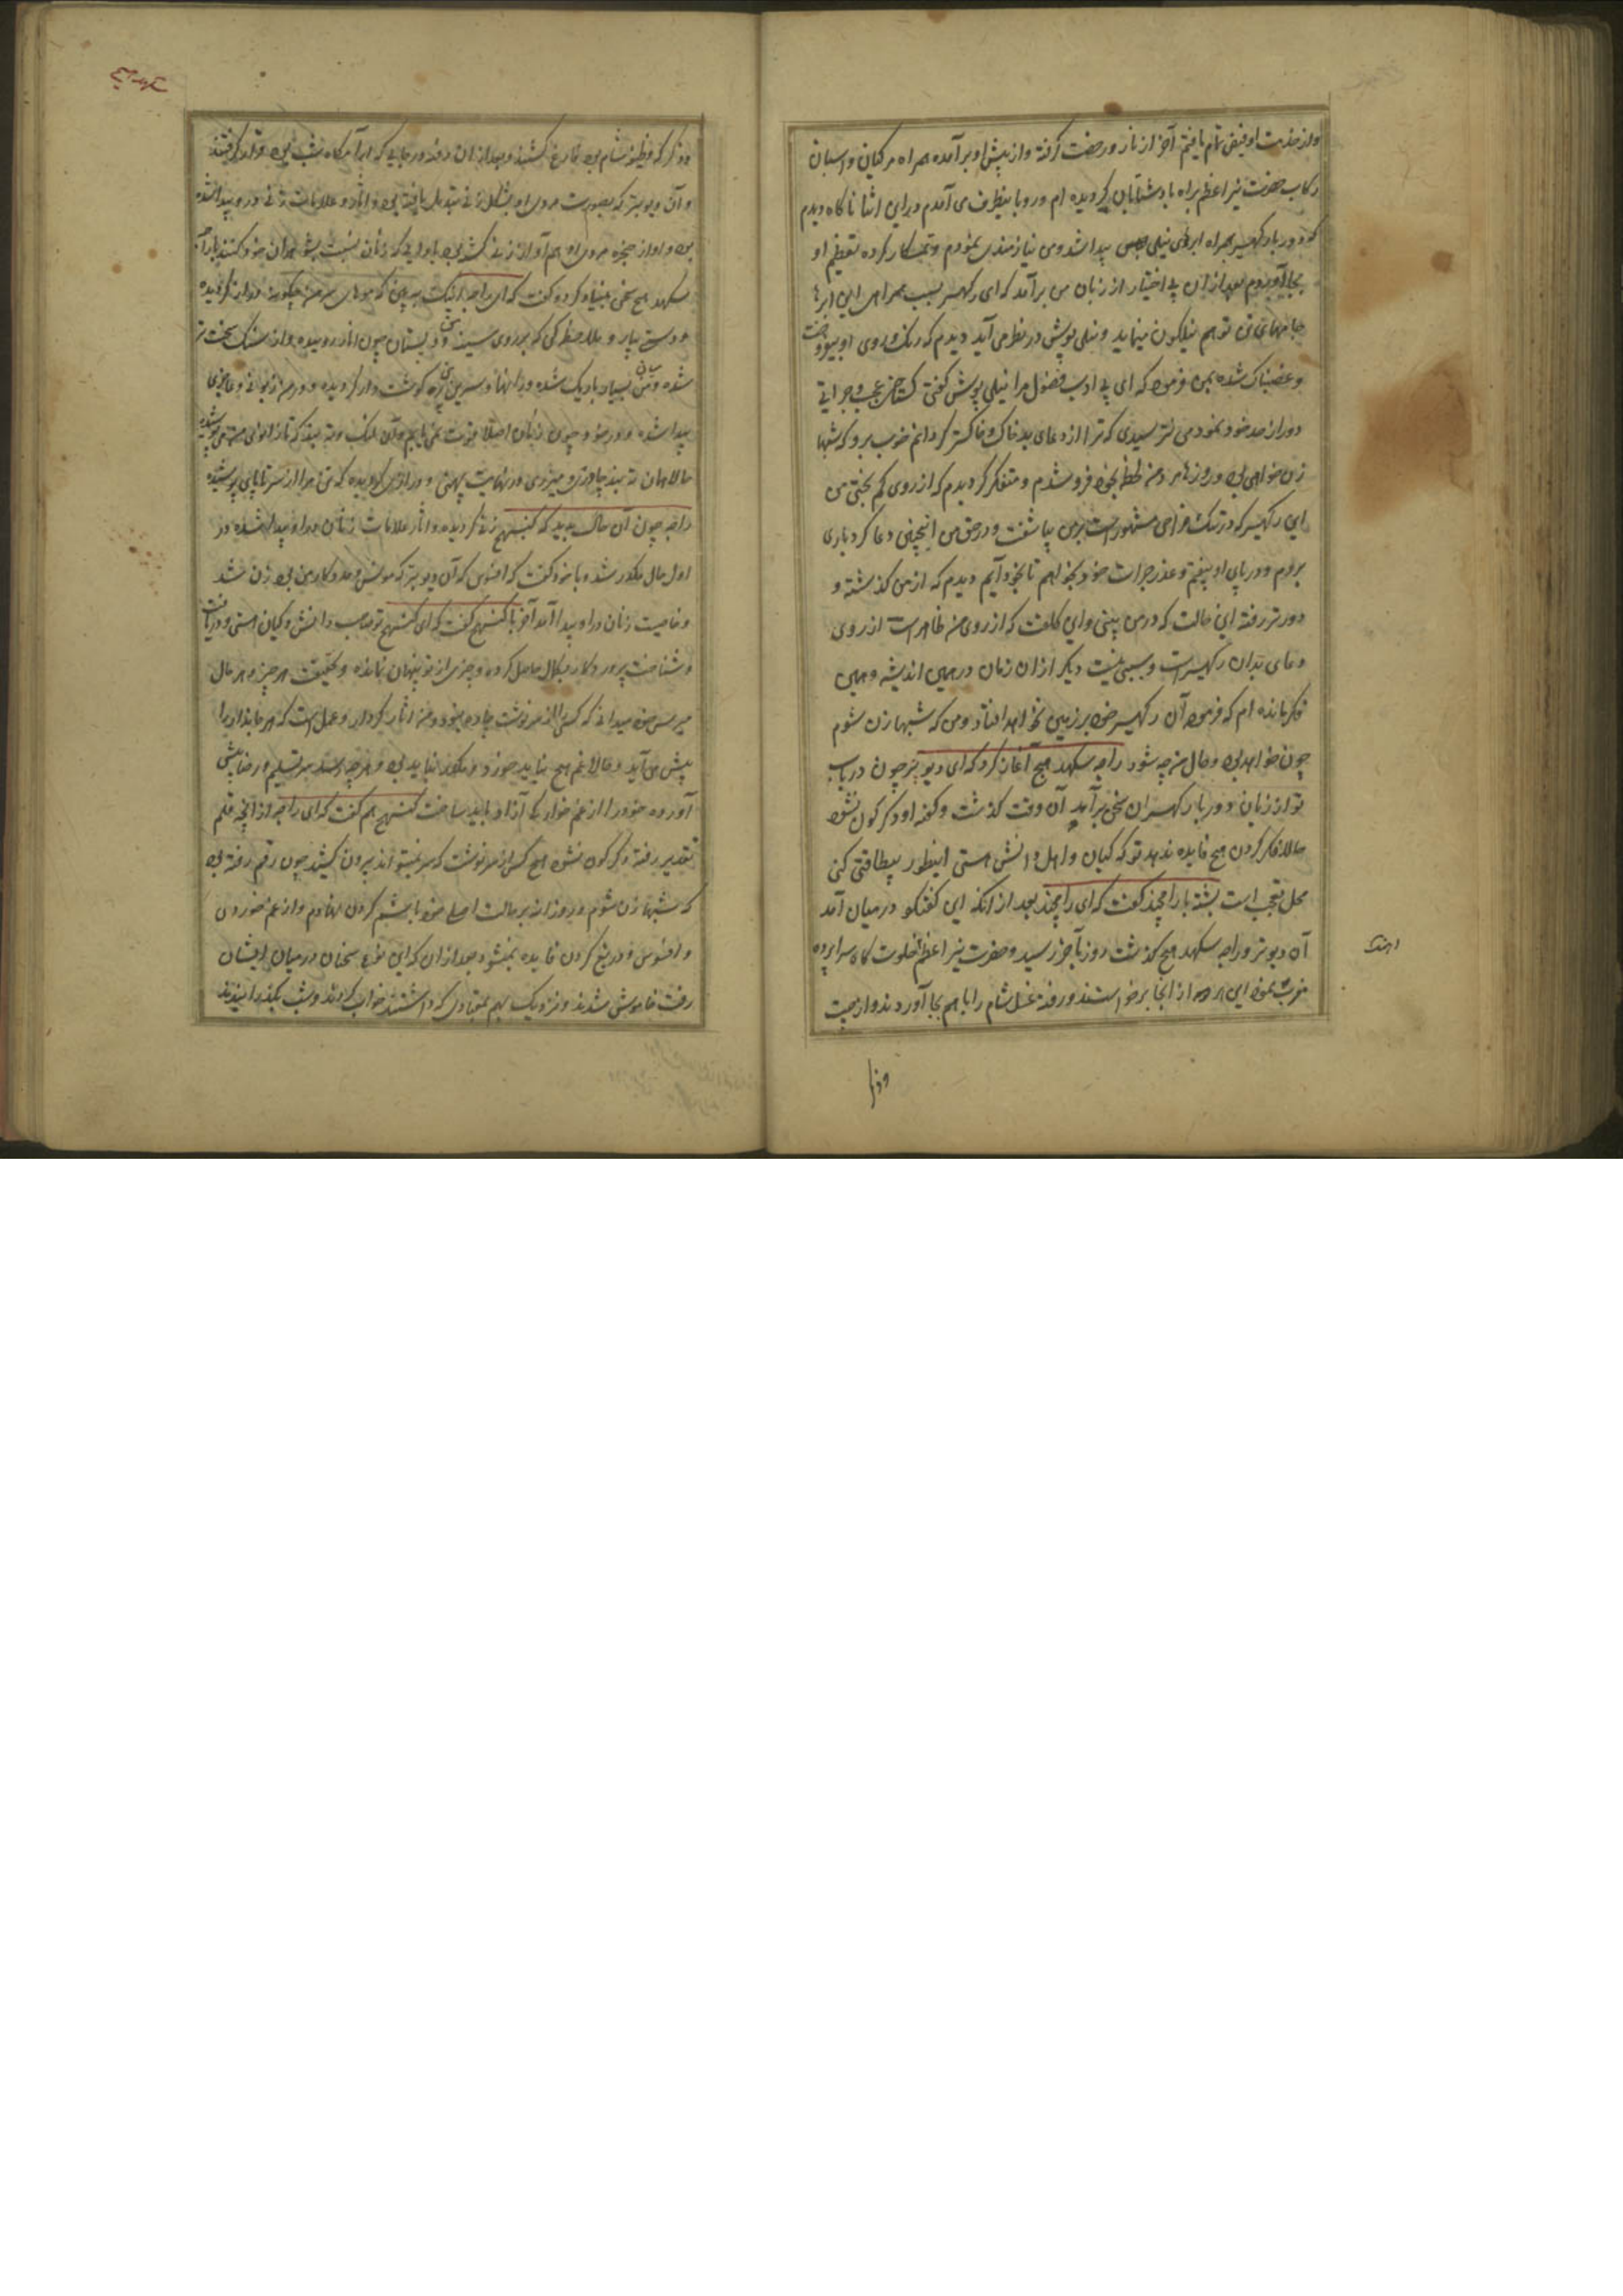 واز خدمت او فیض تمام یافتم آخر از نارد رخصت گرفته واز پیش او برآمده همراه مرکبان و اسبان
رکاب حضرت نیر اعظم براه باد شتابان گردیده ام و رو با ینطرف می آمدم درین اثنا ناگاه دیدم
که دور باد رکهیسر همراه ابرهای نیلی پیدا شد ومن نیازمندی نمودم و نمسکار کرده تعظیم او
بجا آوردم بعد ازان بی اختیار از زبان من برآمد که ای رکهیسر بسبب همراهی این ابرها
جامهای تن تو هم نیلگون مینماید و نیلی پوش در نظر می آید دیدم که رنگ و روی او
وغضبناک شده بمن فرمود که ای بی ادب فضول مرا نیلی پوش گفتی گستاخی عجب و جراتی
دور از حد خود نمودی نترسیدی که ترا از دعای بد خاک و خاکستر گردانم خوب برو که شبها
زن خواهی بود و روزها مرد من لحظه بخود فرو شدم و متفکر گردیدم که از روی کم بختی من
این رکهیسر که در تنک مزاجی مشهور است برمن بیاشفت و در حق من اینچنین دعا کرد باری
بروم و در پای او بیفتم و عذر جرات خود بخواهم تا بخود آیم دیدم که از من گذشته و
دورتر رفته این حالت که در من بینی و این کلفت که از روی من ظاهر است از روی
دعای بد آن رکهیسر است و سببی نیست دیگر ازان زمان در همین اندیشه و همین
فکر مانده ام که فرموده آن رکهیسر خود بر زمین نخواهد افتاد و من که شبها زن شوم
چون خواهد بود و حال من چه شود راجه سکهدهج آغاز کرد که ای دیو پتر چون در باب
تو از زبان دور باد رکهیسر آن سخن برآید آن وقت گذشت و گفته او دگرگون نشود
حالا فکر کردن هیچ فایده ندهد تو که گیان و اهل دانش هستی اینطور بیطاقتی کنی
محل تعجب است بشته با رامچند گفت که ای رامچند بعد از آنکه این گفتگو در میان آمد
آن دیو پتر و راجه سکهدهج گذشت روز بآخر رسید و حضرت نیر اعظم بخلوت گاه سراپرده
غرب نمود این هر دو از انجا برخواستند و رفته غسل شام را باهم بجا آوردند و از
وذکر
و ذکر که وظیفه شام بود فارغ گشتند و بعد از ان رفته در جایی که آرامگاه شب بود قرار گرفتند
و آن دیو پتر که بصورت مردی بود بشکل زنی تبدیل یافته بود و آثار و علامات زنی در و پیدا شده
بود و آواز حنجره مردی او هم آواز زنی گشته بود باوایی که زنان نسبت بشوهران خود کنند با راجه
سکهدهج سخن بنیاد کرده گفت که ای راجه نیک ببین که موهای سر من چگونه دراز گردیده
و دست بیار و ملاحظه کن که بر روی سینه من دو پستان چون انار روییده و از سنگ سخت تر
شده و میان من بسیار باریک شده و رانها و سرین من پره گوشت دار گردیده و در من زبونی و عاجزی
پیدا شده و در خود چون زنان اصلا قوت نمی یابم و آن لنگ وته بند که تا زانوی من می پوشید
حالا همان ته بند چادری و میزری در نهایت پهنی و درازی گردیده که تن مرا از سر تا پای پوشیده
راجه چون آن حال بدید که کنبهج زنی گردیده و آثار علامات زنان درو پیدا شده در
اول حال مکدر شده با خود گفت که افسوس که آن دیو پتر که مونس و مددگار من بود زن شد
و خاصیت زنان درو پیدا آمد آخر با کنبهج گفت که ای کنبهج تو صاحب دانش و گیان هستی و دریافت
و شناخت پروردگار بکمال حاصل کرده و چیزی از تو پنهان نمانده و حقیقت هر چیز و هر حال
می رسی خود میدانی که کسی را از سرنوشت چاره نبود و من آثار کردار و عمل است که هر جاندار را
پیش می آید و حالا غم هیچ نباید خورد و مکدر نباید بود و هرچه باشد سر تسلیم و رضا پیش
آورده خود را از غم خوارگی آزاد باید ساخت کنبهج هم گفت که ای راجه از آنچه قلم
تقدیر رفته دگرگون نشود هیچ کس از سرنوشت که سر نمیتواند بیرون کشید چون رقم رفته بود
که شبها زن شوم و روزانه بر حالت اصلی خود باشم گردن نهادم و از غم خوردن
و افسوس و دریغ کردن فایده نمیشود بعد ازان که این نوع سخنان درمیان ایشان
رفت خاموش شدند و نزدیک بهم بمعتادی که داشتند خواب کردند و شب بگذرانیدند